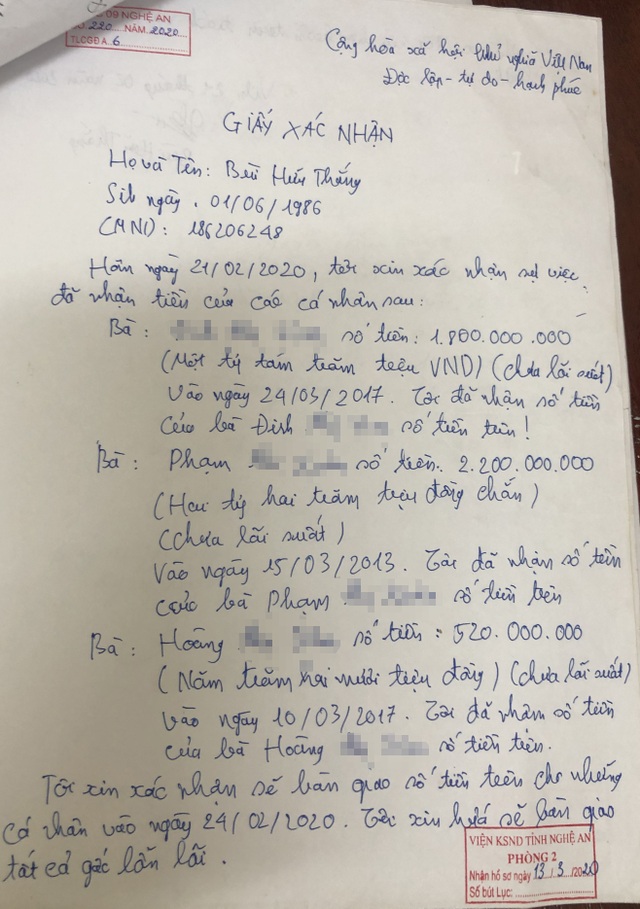 09 NGHỆ AN
Số 220 NĂM 2020
TLCGĐ A. 6
Cộng hòa xã hội chủ nghĩa Việt Nam
Độc lập - tự do - hạnh phúc
GIẤY XÁC NHẬN
Họ và Tên: Bùi Hữu Thắng
Sih ngày. 01/06/1986
CMND: 186206248
Hôm ngày 21/02/2020, tôi xin xác nhận sự việc
đã nhận tiền của các cá nhân sau:
Bà: số tiền: 1.800.000.000
(Một tỷ tám trăm triệu VND) (chưa lãi suất)
Vào ngày 24/03/2017. Tôi đã nhận số tiền
của bà Đinh số tiền trên!
Bà: Phạm số tiền: 2.200.000.000
(Hai tỷ hai trăm triệu đồng chẵn)
(chưa lãi suất)
Vào ngày 15/03/2013. Tôi đã nhận số tiền
của bà Phạm số tiền trên
Bà: Hoàng số tiền: 520.000.000
(Năm trăm hai mươi triệu đồng) (chưa lãi suất)
vào ngày 10/03/2017. Tôi đã nhận số tiền
của bà Hoàng số tiền trên.
Tôi xin xác nhận sẽ bàn giao số tiền trên cho những
cá nhân vào ngày 24/02/2020. Tôi xin hứa sẽ bàn giao
tất cả gốc lẫn lãi.
VIỆN KSND TỈNH NGHỆ AN
PHÒNG 2
Nhận hồ sơ ngày 13/3/2020
Số bút Lục: